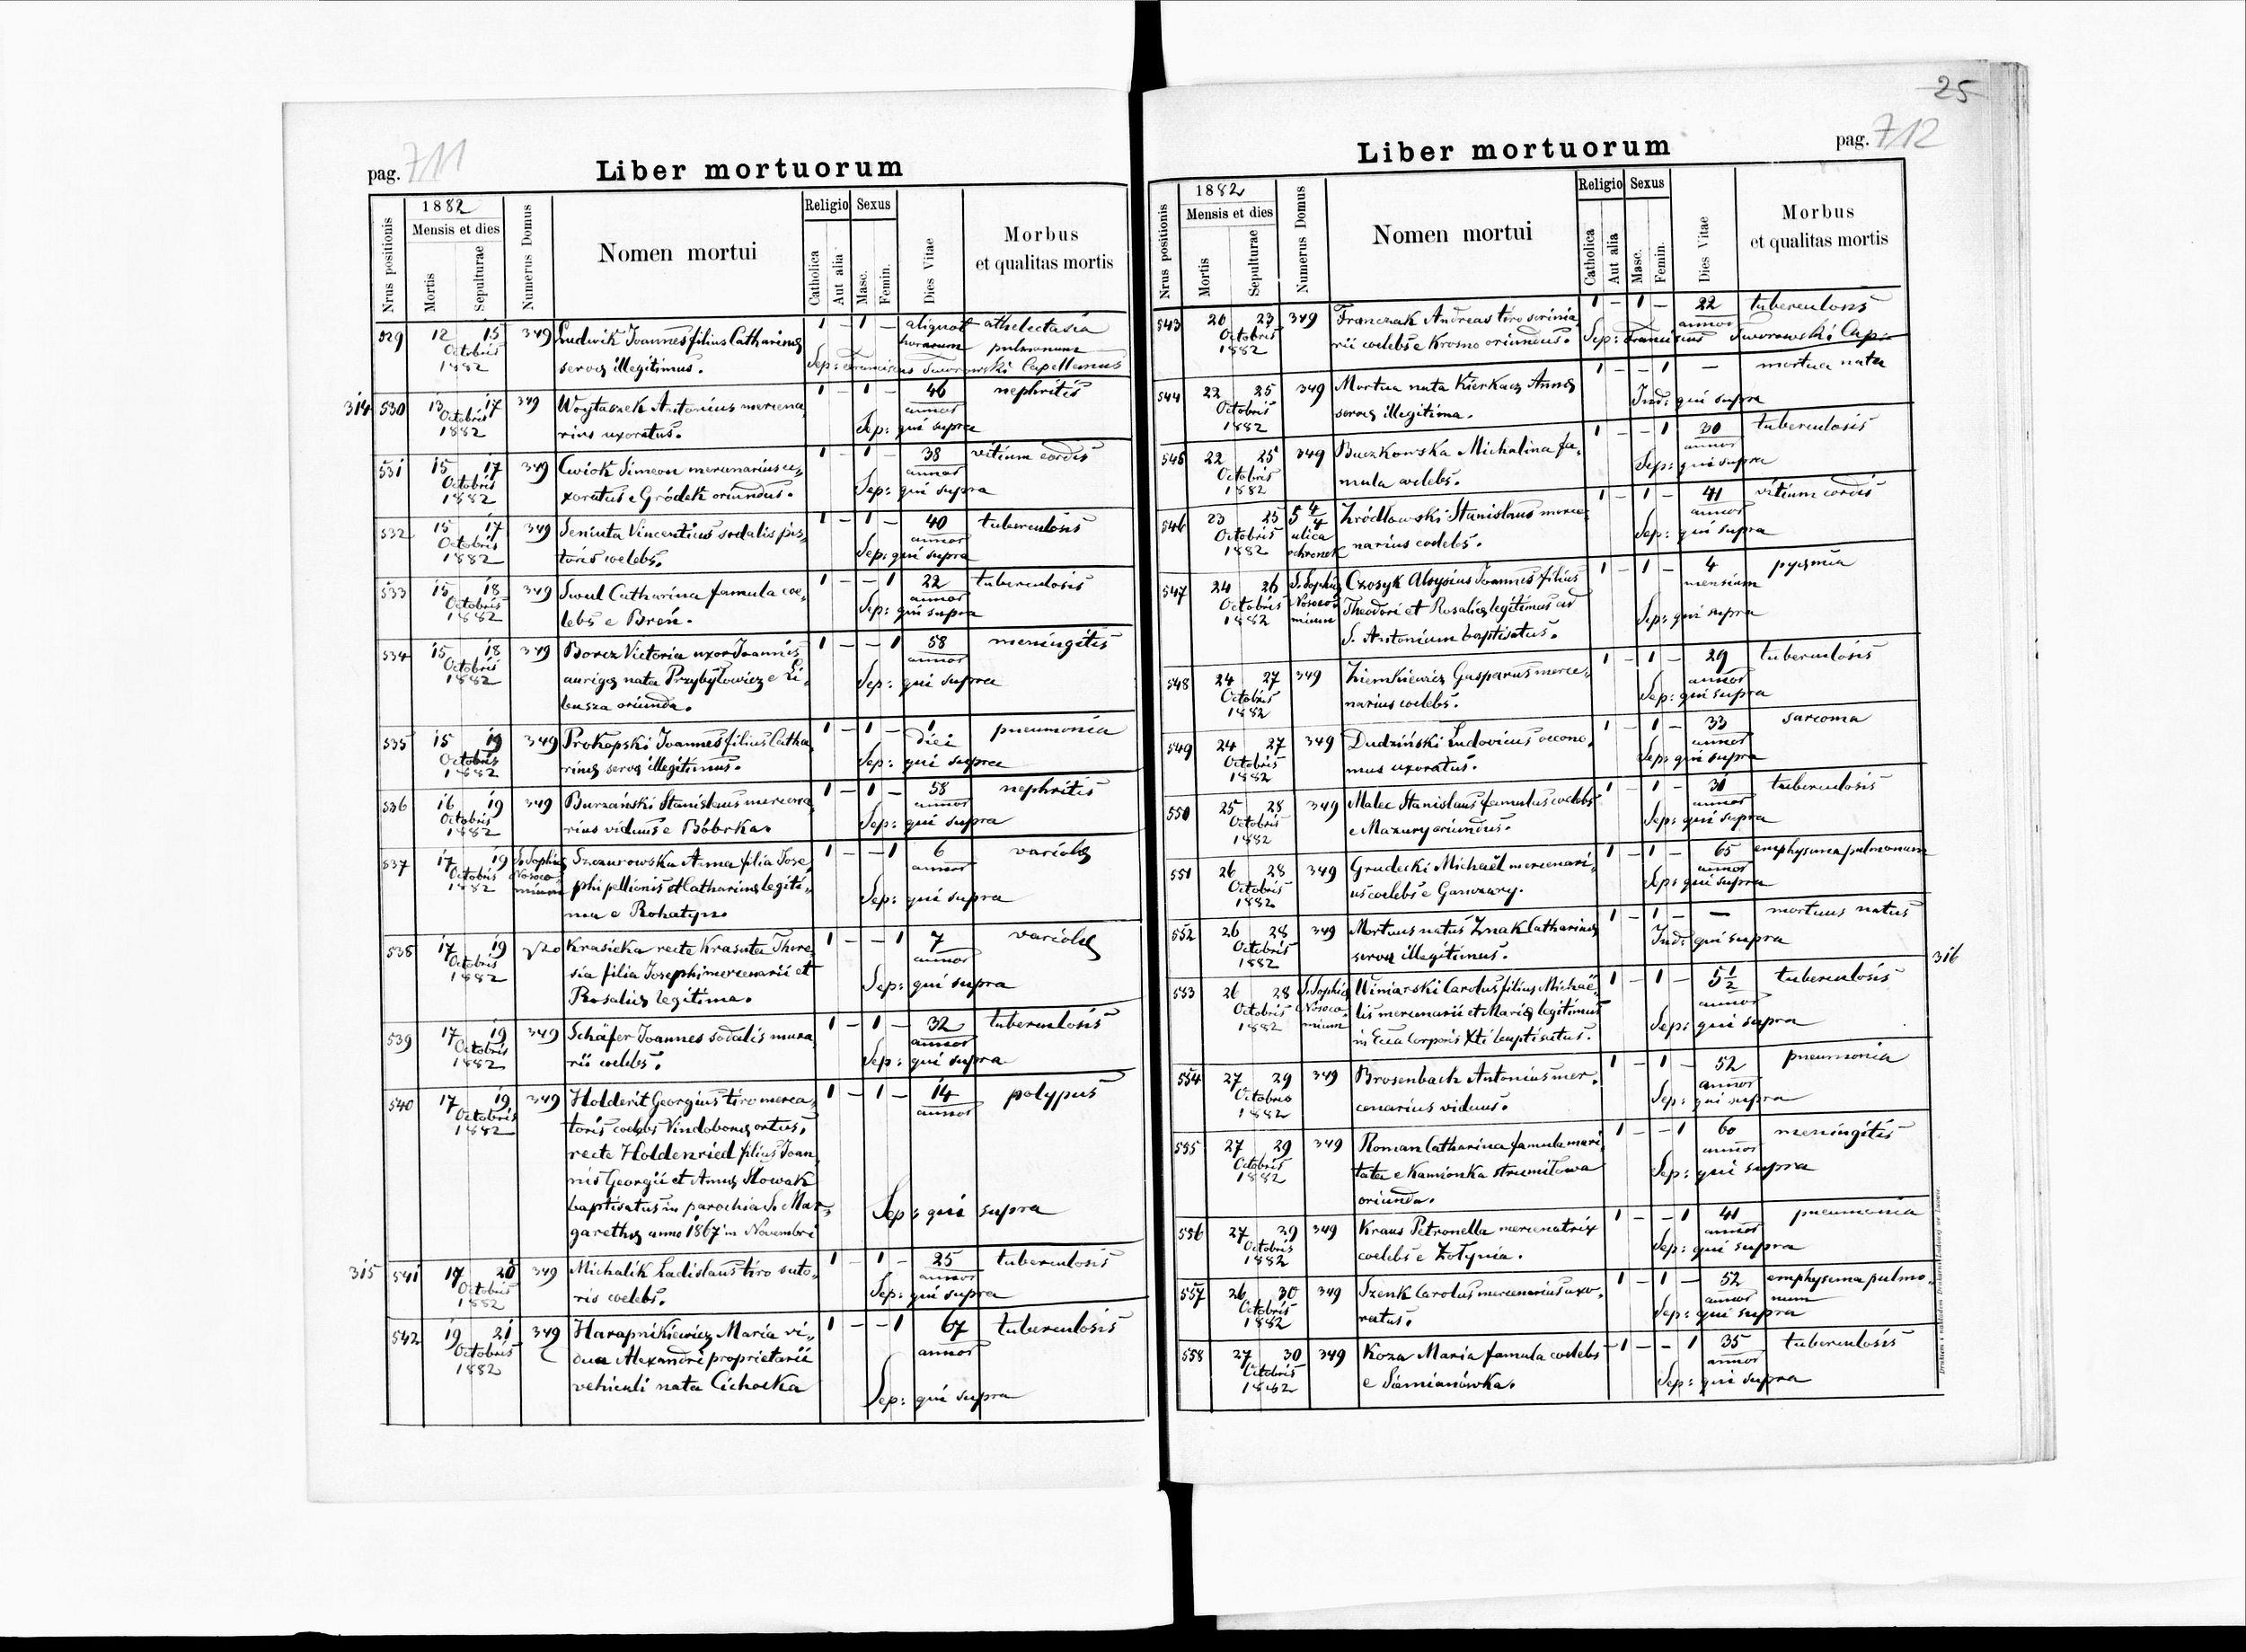 25
pag. 711
Liber mortuorum
Nrus positionis
1882
Mensis et dies
Mortis
Sepulturae
Numerus Domus
Nomen mortui
Religio
Catholica
Aut alia
Sexus
Masc.
Femin.
Dies Vitae
Morbus
et qualitas mortis
529 12 15 349 Ludwik Joannes filius Catharinæ 1 - 1 - aliquot athelectasia
Octobris horarum pulmonum
1882 servæ illegitimus. Sep: Franciscus Tworowski Capellanus
314 530 13 17 349 Woytaszek Antonius mercena 1 - 1 - 46 nephritis
Octobris annor
1882 rius uxoratus. Sep: qui supra
531 15 17 349 Cwiok Simeon mercenarius u, 1 - 1 - 38 vitium cordis
Octobris annor
1882 xoratus e Gródek oriundus. Sep: qui supra
532 15 17 349 Seniuta Vincentius sodalis pis, 1 - 1 - 40 tuberculosis
Octobris annor
1882 toris coelebs. Sep: qui supra
533 15 18 349 Swul Catharina famula coe, 1 - - 1 22 tuberculosis
Octobris annor
1882 lebs e Breń. Sep: qui supra
534 15 18 349 Borcz Victoria uxor Joannis 1 - - 1 58 meningitis
Octobris annor
1882 aurigæ nata Przybyłowicz e Li, Sep: qui supra
busza oriunda.
535 15 19 349 Prokopski Joannes filius Catha 1 - 1 - 1 pneumonia
Octobris diei
1882 rinæ servæ illegitimus. Sep: qui supra
536 16 19 349 Burzański Stanislaus mercena 1 - 1 - 58 nephritis
Octobris annor
1882 rius viduus e Bóbrka. Sep: qui supra
537 17 19 S. Sophiæ Szczurowska Anna filia Jose 1 - - 1 6 variolæ
Octobris Nosoco, annor
1882 mium phi pellionis et Catharinæ legiti, Sep: qui supra
ma e Rohatyn.
538 17 19 √20 Krasicka recte Krasuta There 1 - - 1 7 variolæ
Octobris annor
1882 sia filia Josephi mercenarii et Sep: qui supra
Rosaliæ legitima.
539 17 19 349 Schäfer Joannes sodalis mura 1 - 1 - 32 tuberculosis
Octobris annor
1882 rii coelebs. Sep: qui supra
540 17 19 349 Holderit Georgius tiro merca, 1 - 1 - 14 polypus
Octobris annor
1882 toris coelebs Vindobonæ ortus,
recte Holdenried filius Joan
nis Georgii et Annæ Slowak
baptisatus in parochia S. Mar, Sep: qui supra
garethæ anno 1867 in Novembri
315 541 17 20 349 Michalik Ladislaus tiro suto, 1 - 1 - 25 tuberculosis
Octobris annor
1882 ris coelebs. Sep: qui supra
542 19 21 349 Harapnikiewicz Maria vi, 1 - - 1 67 tuberculosis
Octobris annor
1882 dua Alexandri proprietarii
vehiculi nata Cichocka Sep: qui supra
pag. 712
Liber mortuorum
Nrus positionis
1882
Mensis et dies
Mortis
Sepulturae
Numerus Domus
Nomen mortui
Religio
Catholica
Aut alia
Sexus
Masc.
Femin.
Dies Vitae
Morbus
et qualitas mortis
543 20 23 349 Franczak Andreas tiro scrinia, 1 - 1 - 22 tuberculosis
Octobris annor
1882 rii coelebs e Krosno oriundus. Sep: Franciscus Tworowski Cap
544 22 25 349 Mortua nata Kierkacz Annæ 1 - - 1 - mortua nata
Octobris Ind: qui supra
1882 servæ illegitima.
545 22 25 349 Buczkowska Michalina fa, 1 - - 1 30 tuberculosis
Octobris annor
1882 mula coelebs. Sep: qui supra
546 23 25 5 4/4 Zródłowski Stanislaus merce, 1 - 1 - 41 vitium cordis
Octobris ulica annor
1882 ochronek narius coelebs. Sep: qui supra
547 24 26 S. Sophiæ Czosyk Aloysius Joannes filius 1 - 1 - 4 pyæmia
Octobris Nosoco mensium
1882 mium Theodori et Rosaliæ legitimus ad Sep: qui supra
S. Antonium baptisatus.
548 24 27 349 Ziemkiewicz Gasparus merce, 1 - 1 - 29 tuberculosis
Octobris annor
1882 narius coelebs. Sep: qui supra
549 24 27 349 Dudziński Ludovicus oecono, 1 - 1 - 33 sarcoma
Octobris annor
1882 mus uxoratus. Sep: qui supra
550 25 28 349 Malec Stanislaus famulus coelebs 1 - 1 - 31 tuberculosis
Octobris annor
1882 e Mazury oriundus. Sep: qui supra
551 26 28 349 Grudecki Michaël mercenari, 1 - 1 - 65 emphysema pulmonum
Octobris annor
1882 us coelebs e Ganczary. Sep: qui supra
552 26 28 349 Mortuus natus Znak Catharinæ 1 - 1 - - mortuus natus
Octobris Ind: qui supra
1882 servæ illegitimus.
553 26 28 S. Sophiæ Winiarski Carolus filius Michaë, 1 - 1 - 5 1/2 tuberculosis 316
Octobris Nosoco, annor
1882 mium lis mercenarii et Mariæ legitimus Sep: qui supra
in Ecca Corporis Xti baptisatus.
554 27 29 349 Brosenbach Antonius mer, 1 - 1 - 52 pneumonia
Octobris annor
1882 cenarius viduus. Sep: qui supra
555 27 29 349 Roman Catharina famula mari, 1 - - 1 60 meningitis
Octobris annor
1882 tata e Kamionka strumiłowa Sep: qui supra
oriunda.
556 27 29 349 Kraus Petronella mercenatrix 1 - - 1 41 pneumonia
Octobris annor
1882 coelebs e Żołynia. Sep: qui supra
557 26 30 349 Szenk Carolus mercenarius uxo, 1 - 1 - 52 emphysema pulmo,
Octobris annor num
1882 ratus. Sep: qui supra
558 27 30 349 Koza Maria famula coelebs 1 - - 1 35 tuberculosis
Octobris annor
1882 e Siemianówka. Sep: qui supra